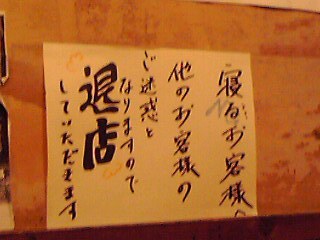 寝るお客様。
他のお客様の
ご迷惑と
なりますので
退店
していただきます